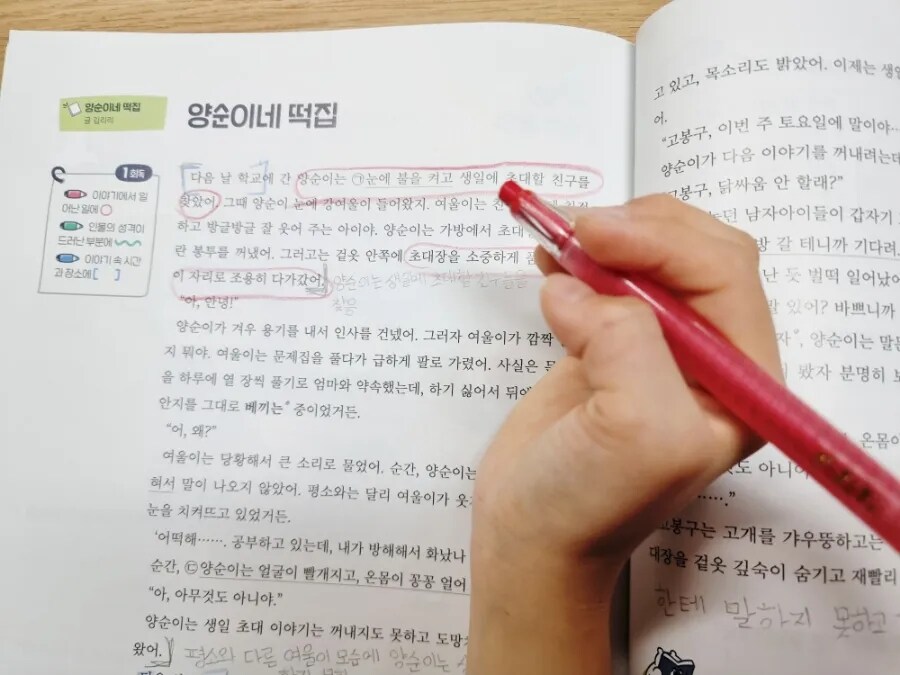 양순이네 떡집
글 김리리
양순이네 떡집
1회독
이야기에서 일
어난 일에 ○
인물의 성격이
드러난 부분에
이야기 속 시간
과 장소에 [ ]
다음 날 학교에 간 양순이는 ㉠눈에 불을 켜고 생일에 초대할 친구를
찾았어. 그때 양순이 눈에 강여울이 들어왔지. 여울이는
하고 방글방글 잘 웃어 주는 아이야. 양순이는 가방에서 초대
란 봉투를 꺼냈어. 그러고는 겉옷 안쪽에 초대장을 소중하게
이 자리로 조용히 다가갔어. 양순이는 생일에 초대할 친구들을
찾음
"아, 안녕!"
양순이가 겨우 용기를 내서 인사를 건넸어. 그러자 여울이가 깜짝
지 뭐야. 여울이는 문제집을 풀다가 급하게 팔로 가렸어. 사실은
을 하루에 열 장씩 풀기로 엄마와 약속했는데, 하기 싫어서 뒤에
안지를 그대로 베끼는 중이었거든.
"어, 왜?"
여울이는 당황해서 큰 소리로 물었어. 순간, 양순이는
혀서 말이 나오지 않았어. 평소와는 달리 여울이가
눈을 치켜뜨고 있었거든.
'어떡해……. 공부하고 있는데, 내가 방해해서 화났나
순간, ㉢양순이는 얼굴이 빨개지고, 온몸이 꽁꽁 얼어
"아, 아무것도 아니야."
양순이는 생일 초대 이야기는 꺼내지도 못하고 도망
왔어. 평소와 다른 여울이 모습에 양순이는
고 있고, 목소리도 밝았어. 이제는 생일
어.
"고봉구, 이번 주 토요일에 말이야…
양순이가 다음 이야기를 꺼내려는데
"고봉구, 닭싸움 안 할래?"
던 남자아이들이 갑자기
방 갈 테니까 기다려.
난 듯 벌떡 일어났어
말 있어? 바쁘니까
자", 양순이는 말은
봤자 분명히
온몸이
도 아니야
……."
고봉구는 고개를 갸우뚱하고는
대장을 겉옷 깊숙이 숨기고 재빨리
한테 말하지 못하고